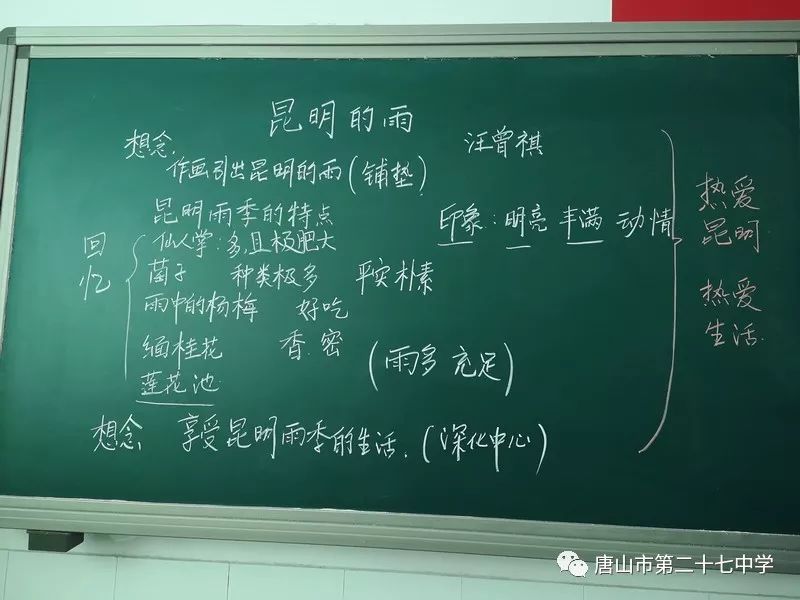 昆明的雨
想念 汪曾祺
作画引出昆明的雨(铺垫)
昆明雨季的特点 印象:明亮 丰满 动情
回忆
仙人掌:多,且极肥大
菌子 种类极多 平实朴素
雨中的杨梅 好吃
缅桂花 香.密
莲花池 (雨多 充足)
想念 享受昆明雨季的生活.(深化中心)
热爱
昆明
热爱
生活
唐山市第二十七中学